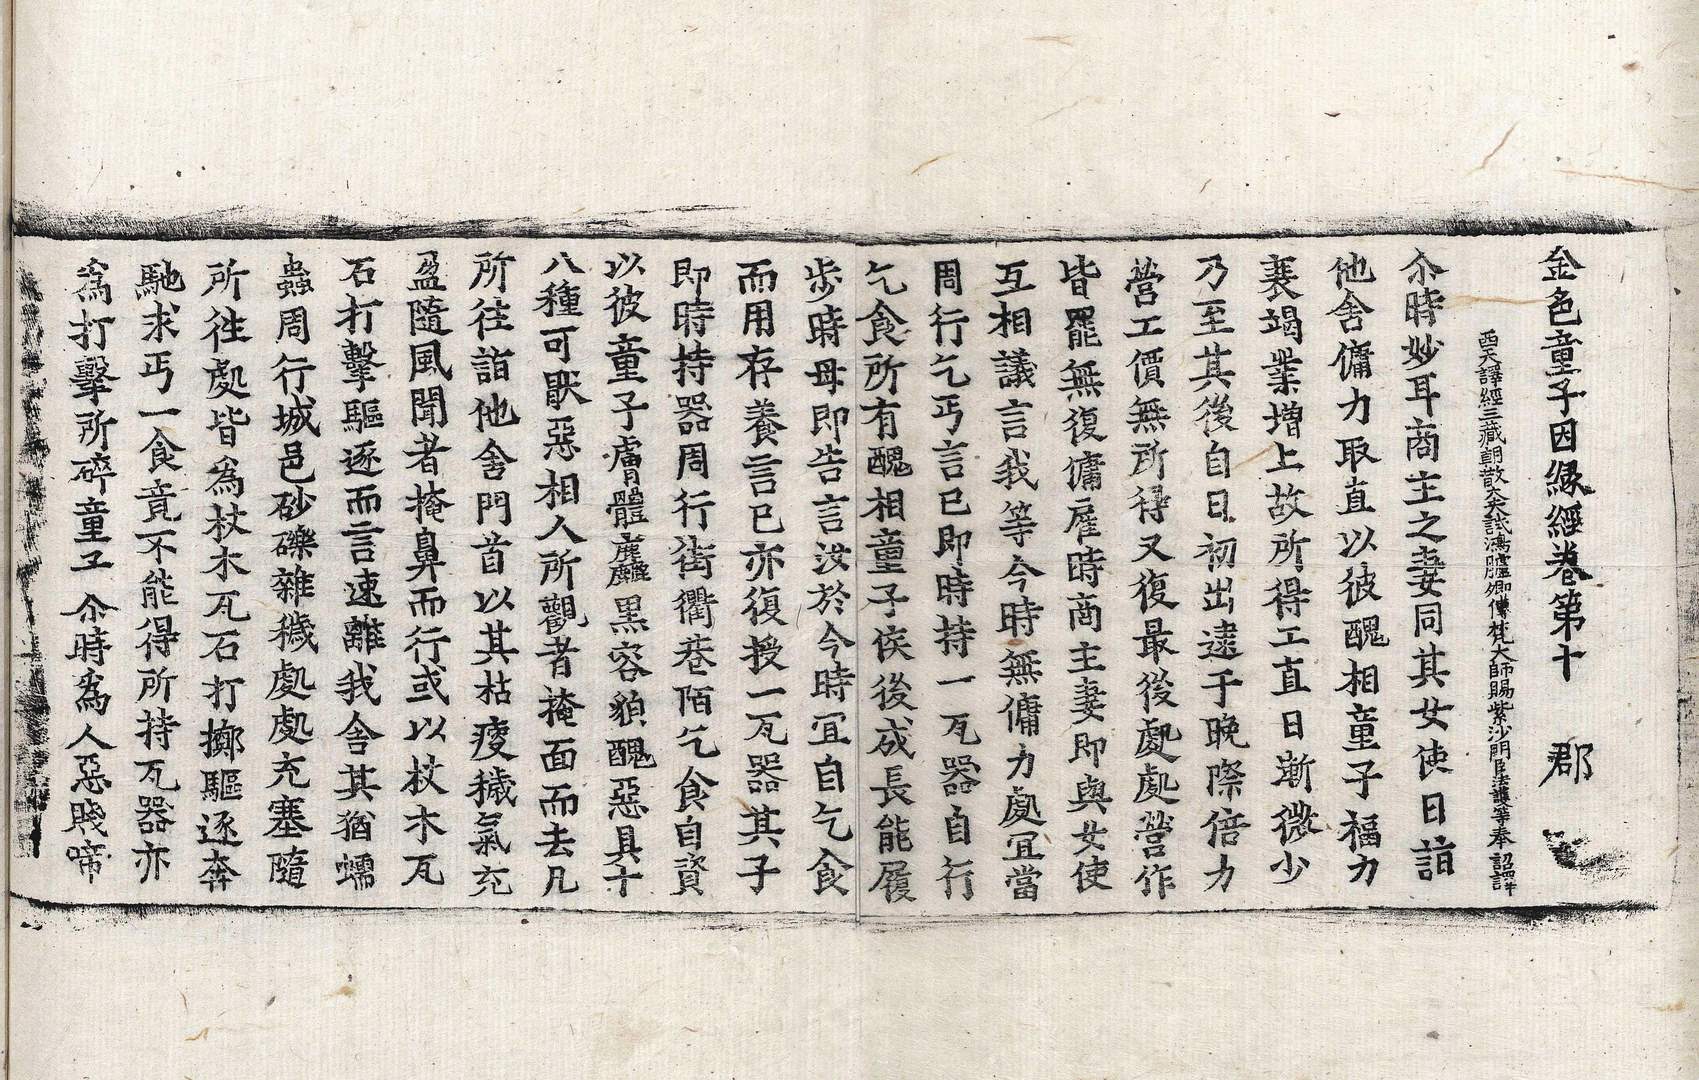 金色童子因縁經卷第十　郡
西天譯經三藏朝散大夫試鴻臚卿傳梵大師賜紫沙門臣法護等奉　詔譯
尒時妙耳商主之妻同其女使日詣
他舍傭力取直以彼醜相童子福力
衰竭業增上故所得工直日漸微少
乃至其後自日初出逮于晚際倍力
營工價無所得又復最後處處營作
皆罷無復傭雇時商主妻即與女使
互相議言我等今時無傭力處宜當
周行乞丐言已即時持一瓦器自行
乞食所有醜相童子俟後成長能履
步時母即告言汝於今時宜自乞食
而用存養言已亦復授一瓦器其子
即時持器周行街衢巷陌乞食自資
以彼童子膚體麤黑容貌醜惡具十
八種可猒惡相人所觀者掩面而去凡
所往詣他舍門首以其枯瘦穢氣充
盈隨風聞者掩鼻而行或以杖木瓦
石打擊驅逐而言速離我舍其猶蠕
蟲周行城邑砂礫雜穢處處充塞隨
所往處皆為杖木瓦石打擲驅逐奔
馳求丐一食竟不能得所持瓦器亦
為打擊所碎童子尒時為人惡賤啼